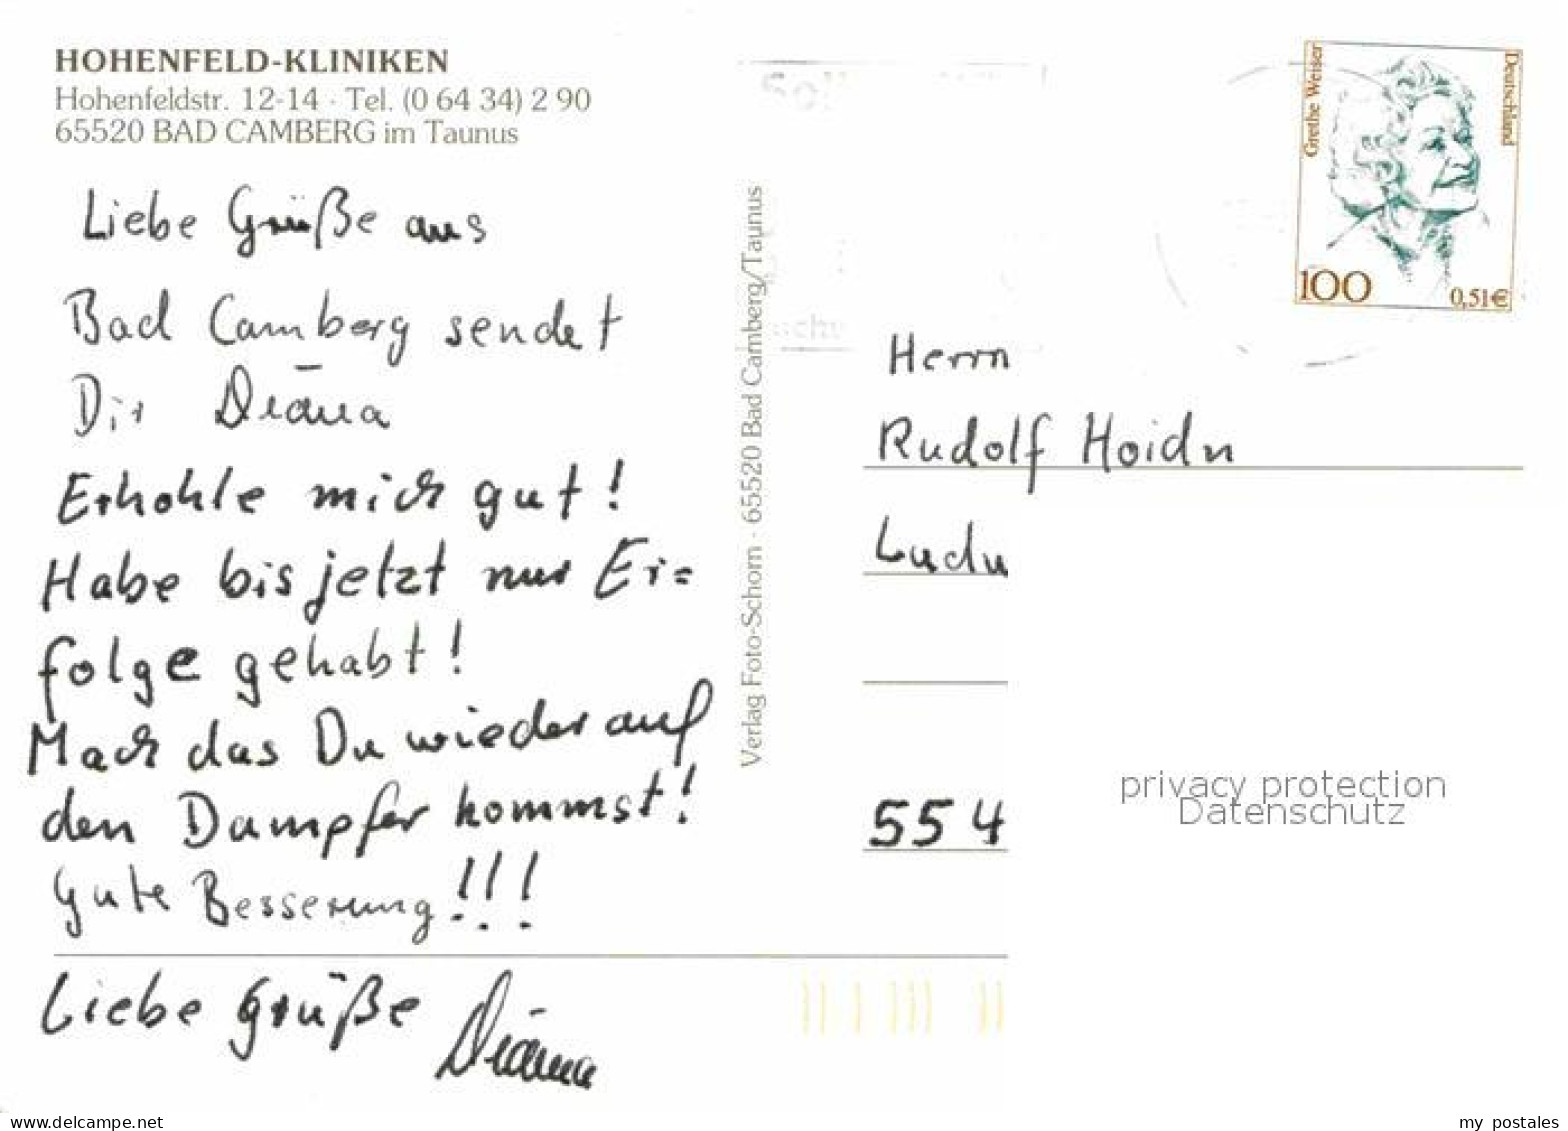 HOHENFELD-KLINIKEN
Hohenfeldstr. 12-14 · Tel. (0 64 34) 2 90
65520 BAD CAMBERG im Taunus
Liebe Grüße aus
Bad Camberg sendet
Dir Diana
Erhohle mich gut!
Habe bis jetzt nur Er=
folge gehabt!
Mach das Du wieder auf
den Dampfer kommst!
Gute Besserung!!!
Liebe Grüße Diana
Verlag Foto-Schorn · 65520 Bad Camberg/Taunus
Grethe Weiser
Deutschland
100
0,51€
Herrn
Rudolf Hoidn
Ludu
554
privacy protection
Datenschutz
delcampe.net
my_postales